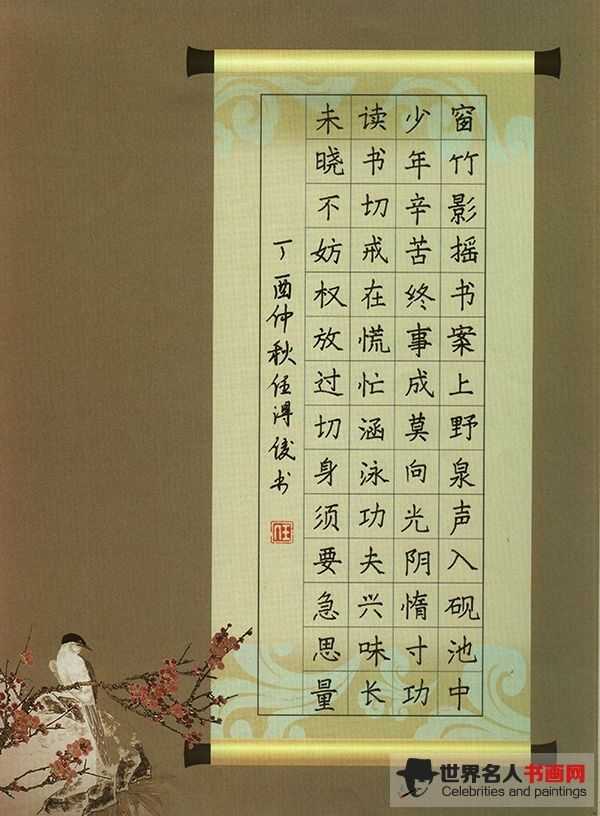 窗竹影摇书案上野泉声入砚池中
少年辛苦终事成莫向光阴惰寸功
读书切戒在慌忙涵泳功夫兴味长
未晓不妨权放过切身须要急思量
丁酉仲秋任得俊书
世界名人书画网
Celebrities and paintings